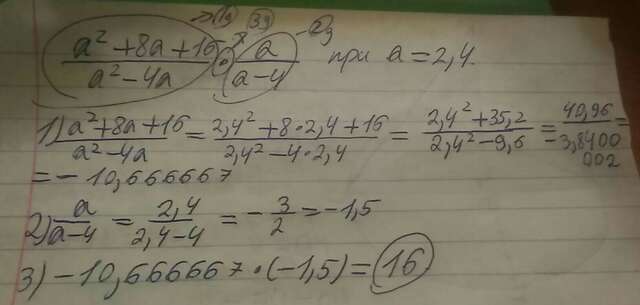 1g 3g 2g
a² + 8a + 16 / a² - 4a · a / a - 4 при a = 2,4.
1) a² + 8a + 16 / a² - 4a = 2,4² + 8 · 2,4 + 16 / 2,4² - 4 · 2,4 = 2,4² + 35,2 / 2,4² - 9,6 = 40,96 / -3,8400002 =
= - 10,666667
2) a / a - 4 = 2,4 / 2,4 - 4 = - 3 / 2 = -1,5
3) - 10,666667 · (-1,5) = 16